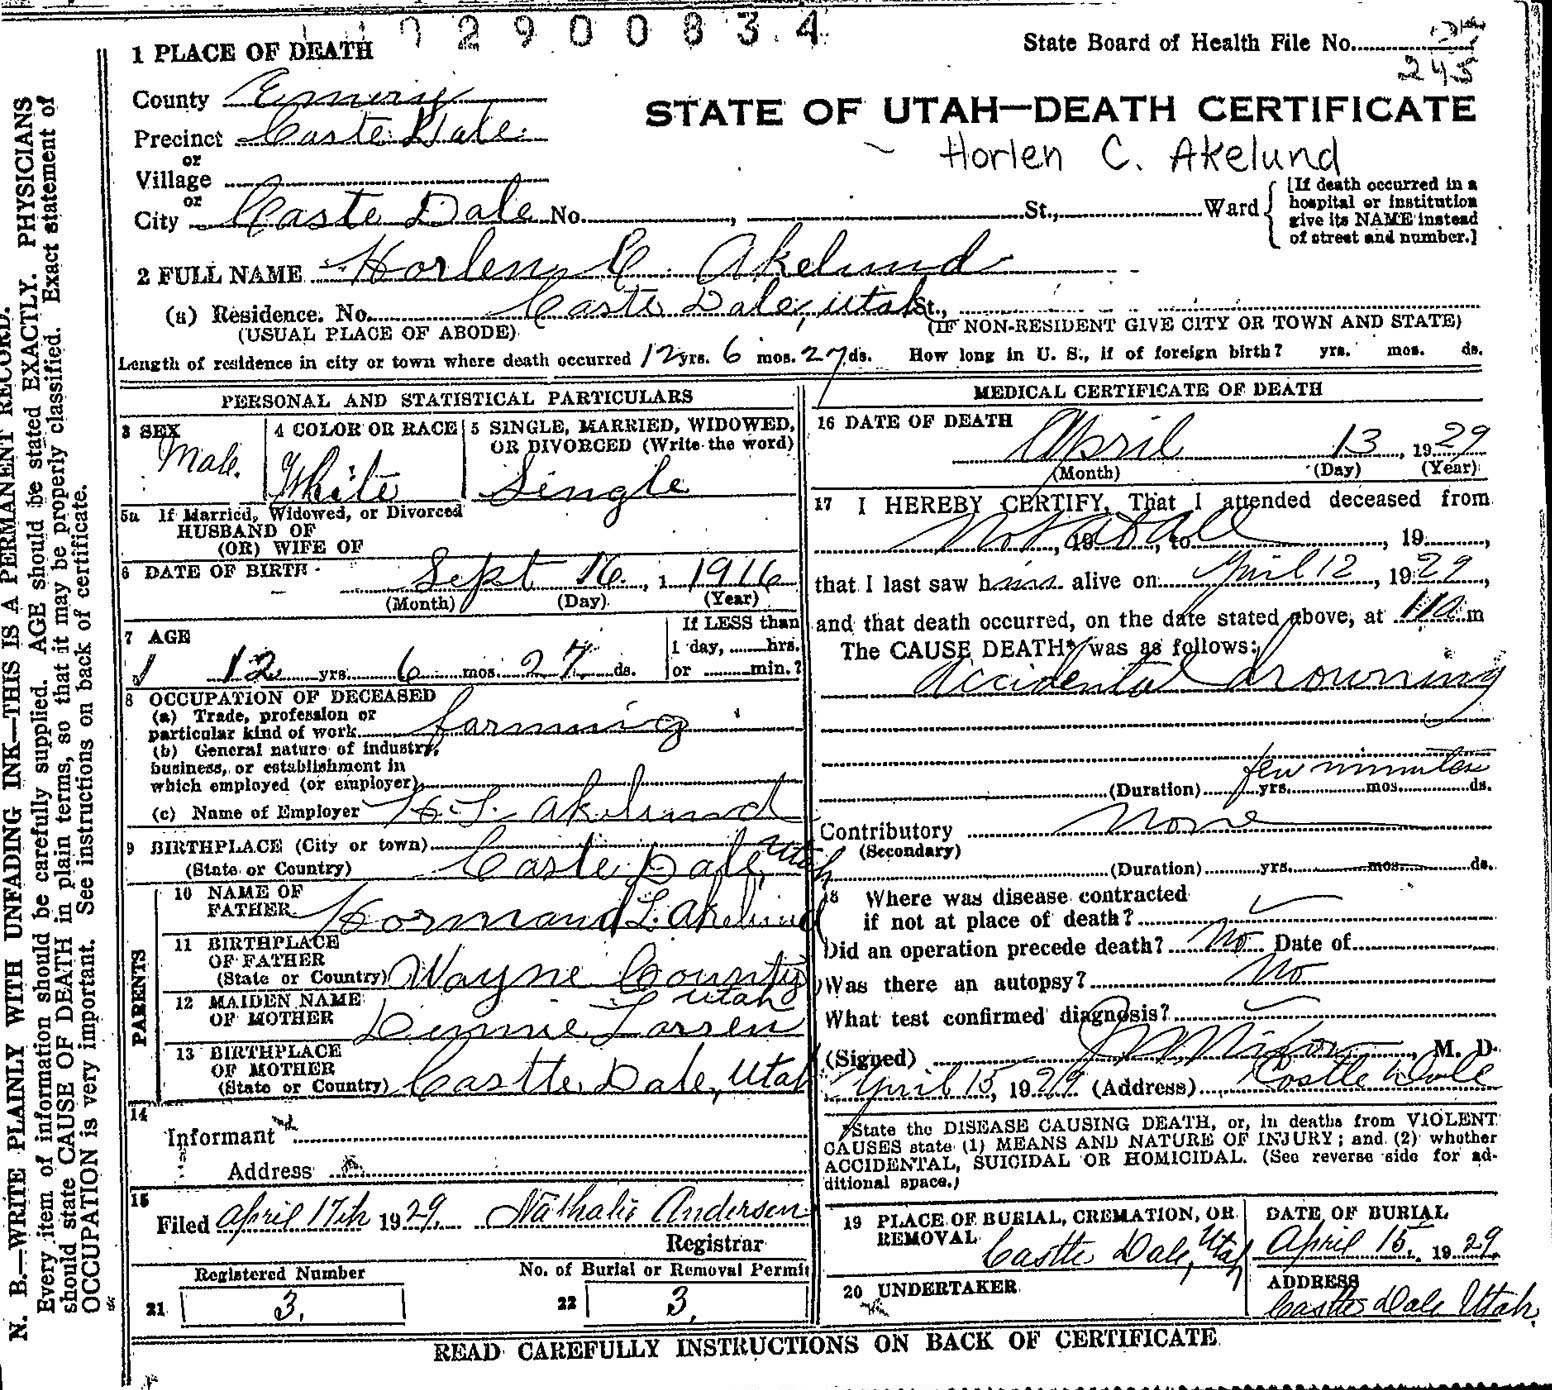 2900834
State Board of Health File No.
245
1 PLACE OF DEATH
County Emery
STATE OF UTAH—DEATH CERTIFICATE
Precinct Caste Dale
Horlen C. Akelund
or
Village
or
City Caste Dale No. , St., Ward
[If death occurred in a
hospital or institution
give its NAME instead
of street and number.]
2 FULL NAME Horlen C. Akelund
(a) Residence. No. Caste Dale, Utah St.,
(USUAL PLACE OF ABODE) (IF NON-RESIDENT GIVE CITY OR TOWN AND STATE)
Length of residence in city or town where death occurred 12 yrs. 6 mos. 27 ds. How long in U. S., if of foreign birth? yrs. mos. ds.
PERSONAL AND STATISTICAL PARTICULARS
3 SEX
Male.
4 COLOR OR RACE
White
5 SINGLE, MARRIED, WIDOWED,
OR DIVORCED (Write the word)
Single
5a If Married, Widowed, or Divorced
HUSBAND OF
(OR) WIFE OF
6 DATE OF BIRTH Sept 16, 1 1916
(Month) (Day) (Year)
7 AGE
12 yrs. 6 mos. 27 ds.
If LESS than
1 day, hrs.
or min.?
8 OCCUPATION OF DECEASED
(a) Trade, profession or
particular kind of work farming
(b) General nature of industry,
business, or establishment in
which employed (or employer)
(c) Name of Employer H. L. Akelund
9 BIRTHPLACE (City or town)
(State or Country) Caste Dale, Utah
PARENTS
10 NAME OF
FATHER Hormand L. Akelund
11 BIRTHPLACE
OF FATHER
(State or Country) Wayne County
Utah
12 MAIDEN NAME
OF MOTHER Dinnie Larsen
13 BIRTHPLACE
OF MOTHER
(State or Country) Castle Dale, Utah
14
Informant
Address
15
Filed April 17th 1929. Nathalie Andersen
Registrar
Registered Number
21 3.
No. of Burial or Removal Permit
22 3.
MEDICAL CERTIFICATE OF DEATH
16 DATE OF DEATH
April 13, 1929
(Month) (Day) (Year)
17 I HEREBY CERTIFY, That I attended deceased from
Not at all, 19 , to , 19 ,
that I last saw him alive on April 12, 1929,
and that death occurred, on the date stated above, at m
The CAUSE DEATH* was as follows:
Accidental drowning
few minutes
(Duration) yrs. mos. ds.
Contributory None
(Secondary)
(Duration) yrs. mos. ds.
18 Where was disease contracted
if not at place of death?
Did an operation precede death? No Date of
Was there an autopsy? No
What test confirmed diagnosis?
(Signed) Nixon, M. D.
April 15, 1929 (Address) Castle Dale
*State the DISEASE CAUSING DEATH, or, in deaths from VIOLENT
CAUSES state (1) MEANS AND NATURE OF INJURY; and (2) whether
ACCIDENTAL, SUICIDAL OR HOMICIDAL. (See reverse side for ad-
ditional space.)
19 PLACE OF BURIAL, CREMATION, OR
REMOVAL
Castle Dale, Utah
DATE OF BURIAL
April 15, 1929.
20 UNDERTAKER
ADDRESS
Castle Dale Utah.
READ CAREFULLY INSTRUCTIONS ON BACK OF CERTIFICATE
N. B.—WRITE PLAINLY WITH UNFADING INK—THIS IS A PERMANENT RECORD.
Every item of information should be carefully supplied. AGE should be stated EXACTLY. PHYSICIANS
should state CAUSE OF DEATH in plain terms, so that it may be properly classified. Exact statement of
OCCUPATION is very important. See instructions on back of certificate.